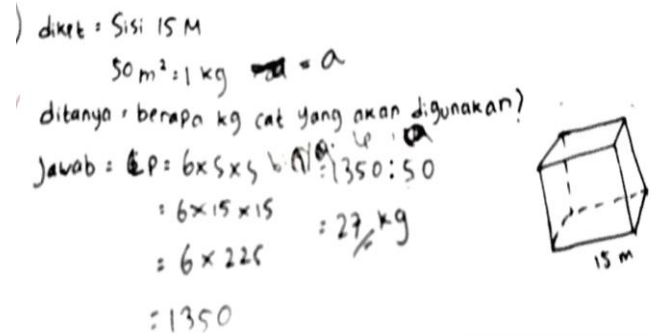 ) diket : Sisi 15 M
50 m² : 1 kg = a
ditanya : berapa kg cat yang akan digunakan?
Jawab : LP = 6 x S x S
= 6 x 15 x 15
= 6 x 225
= 1350
= 1350 : 50
= 27 kg
15 m